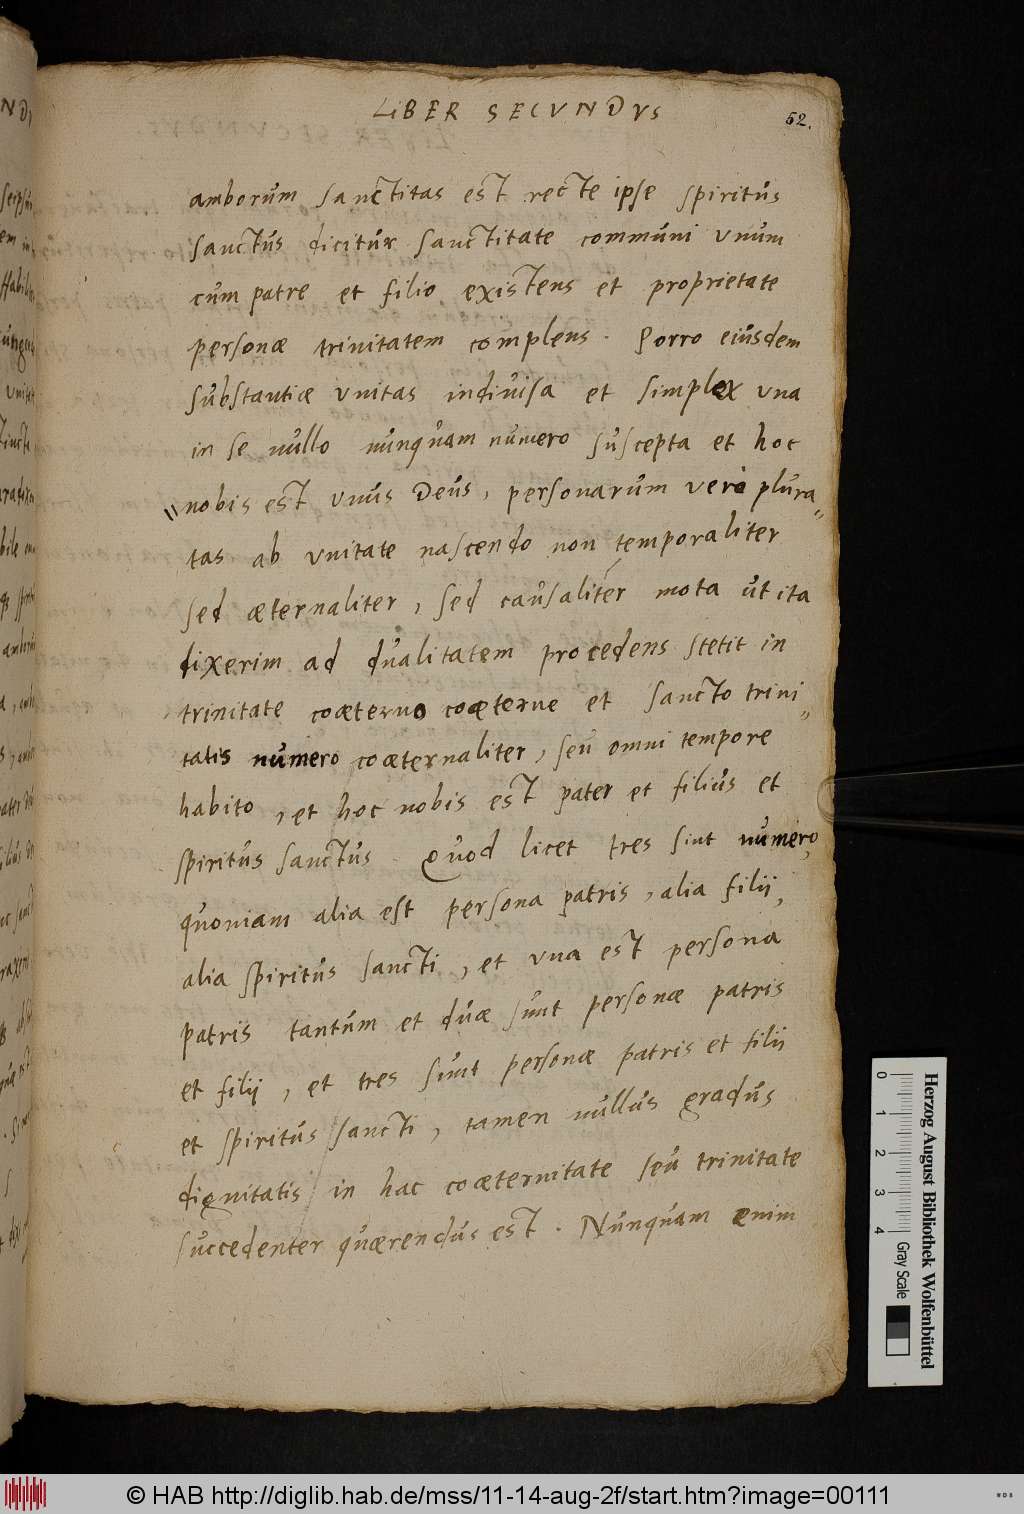 LIBER SECVNDVS
52.
amborum sanctitas est recte ipse spiritus
sanctus dicitur sanctitate communi vnum
cum patre et filio existens et proprietate
personæ trinitatem complens. Porro eiusdem
substantiæ vnitas indiuisa et simplex vna
in se nullo nunquam numero suscepta et hoc
nobis est vnus Deus, personarum vero plura〃
tas ab vnitate nascendo non temporaliter
sed æternaliter, sed causaliter mota ut ita
dixerim ad dualitatem procedens stetit in
trinitate coæterno coæterne et sancto trini〃
tatis numero coæternaliter, seu omni tempore
habito, et hoc nobis est pater et filius et
spiritus sanctus. Quod licet tres sint numero,
quoniam alia est persona patris, alia filij,
alia spiritus sancti, et vna est persona
patris tantum et duæ sunt personæ patris
et filij, et tres sunt personæ patris et filij
et spiritus sancti, tamen nullus gradus
dignitatis in hac coæternitate seu trinitate
succedenter quærendus est. Nunquam enim
0 1 2 3 4
Gray Scale
Herzog August Bibliothek Wolfenbüttel
© HAB http://diglib.hab.de/mss/11-14-aug-2f/start.htm?image=00111